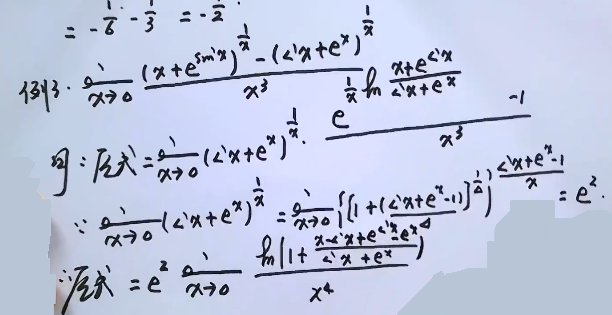 = -\frac{1}{6} - \frac{1}{3} = -\frac{1}{2}
例3. \lim_{x→0} \frac{(x+e^{\sin x})^{\frac{1}{x}} - (\sin x+e^x)^{\frac{1}{x}}}{x^3}
解: 原式 = \lim_{x→0} (\sin x+e^x)^{\frac{1}{x}} · \frac{e^{\frac{1}{x} \ln \frac{x+e^{\sin x}}{\sin x+e^x}} -1}{x^3}
∵ \lim_{x→0} (\sin x+e^x)^{\frac{1}{x}} = \lim_{x→0} \{[1+(\sin x+e^x-1)]^{\frac{1}{Δ}}\}^{\frac{\sin x+e^x-1}{x}} = e^2.
∴ 原式 = e^2 \lim_{x→0} \frac{\ln(1+\frac{x-\sin x+e^{\sin x}-e^x}{\sin x+e^x})}{x^4}